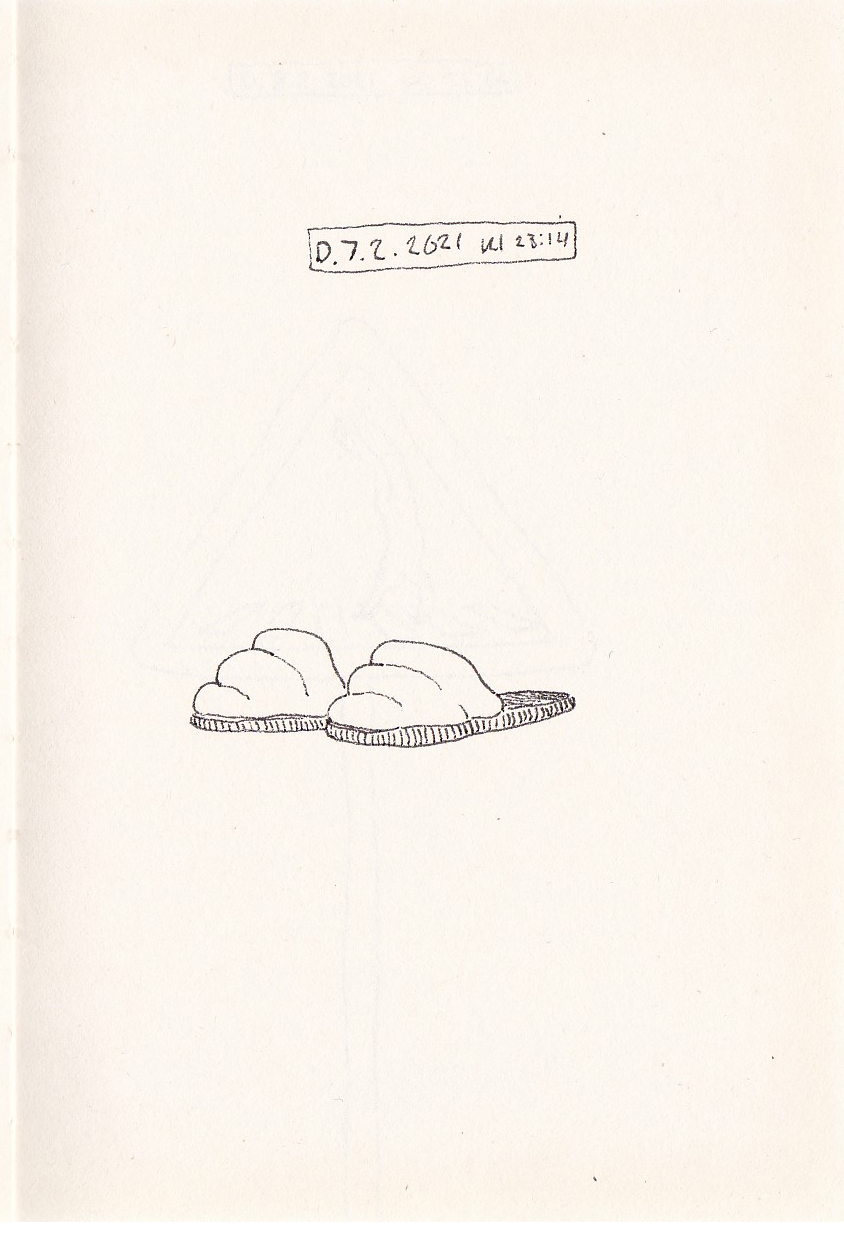 D.7.2.2021 kl 23:14